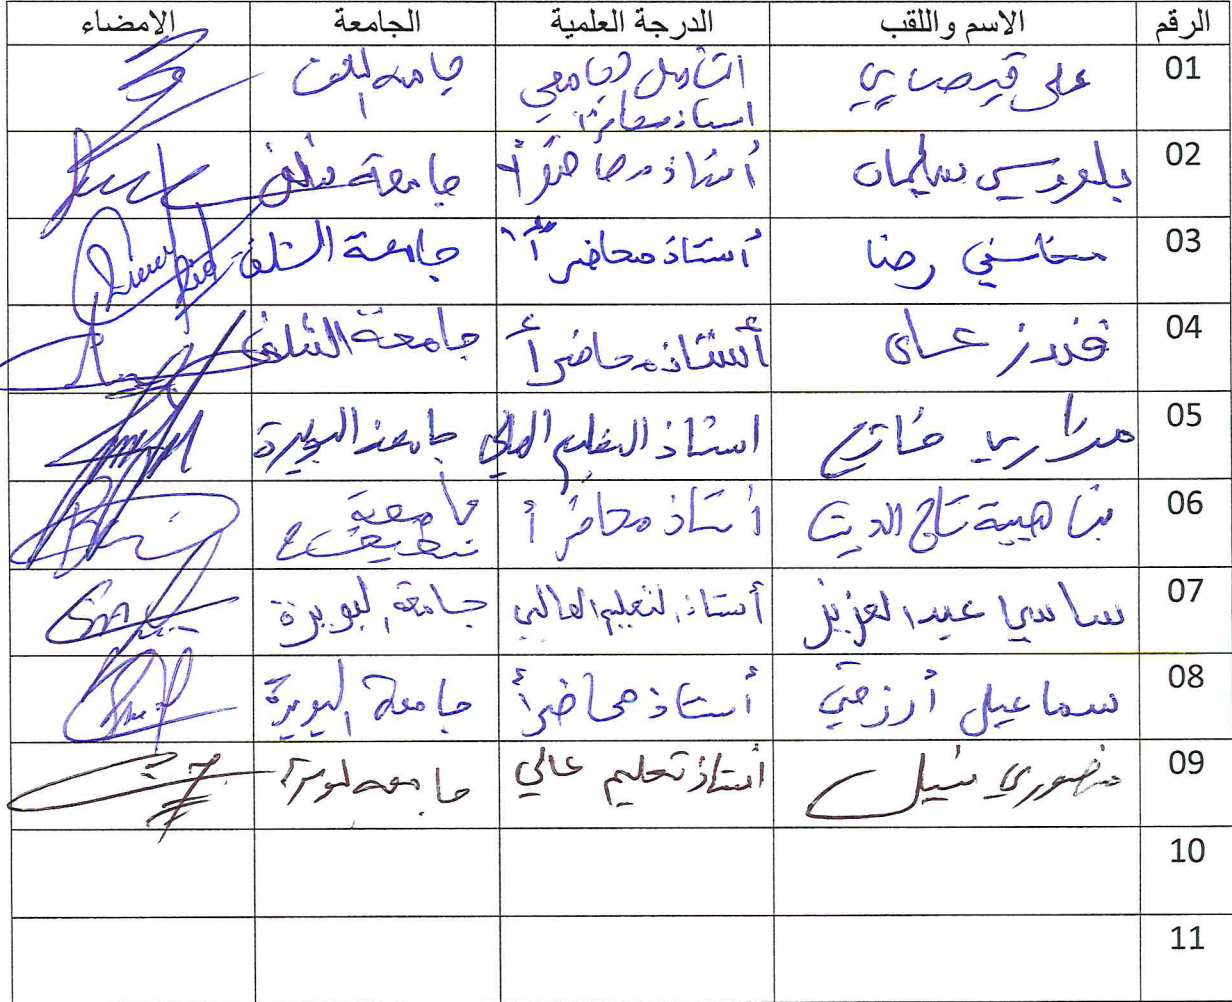 الرقم الاسم واللقب الدرجة العلمية الجامعة الامضاء
01 علي جامعة الشلف
استاذ محاضر أ
02 بلعروسي سليمان أستاذ محاضر أ جامعة شلف
03 محاسني رضا أستاذ محاضر "أ" جامعة الشلف
04 قندز علي أستاذ محاضر أ جامعة الشلف
05 مزاري فاتح استاذ التعليم العالي جامعة البويرة
06 بن هيبة تاج الدين أستاذ محاضر أ جامعة
سطيف 2
07 ساسي عبد العزيز أستاذ التعليم العالي جامعة البويرة
08 سماعيل أستاذ محاضر أ جامعة البويرة
09 منصوري نبيل أستاذ تعليم عالي جامعة البويرة
10
11